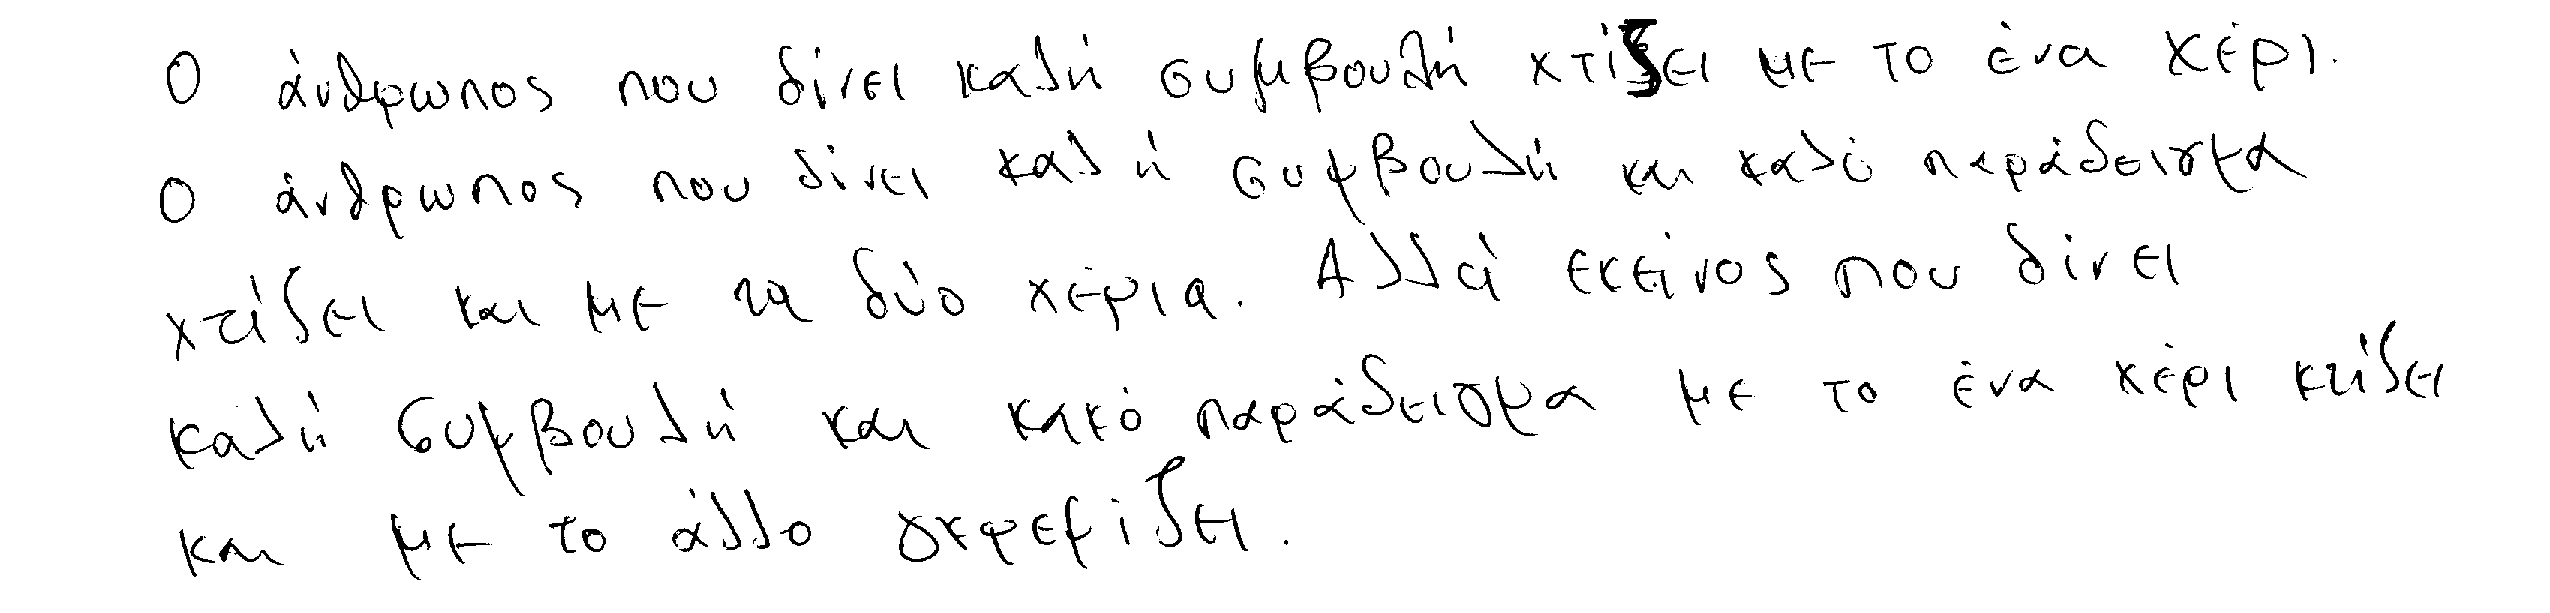 Ο άνθρωπος που δίνει καλή συμβουλή χτίζει με το ένα χέρι.
Ο άνθρωπος που δίνει καλή συμβουλή και καλό παράδειγμα
χτίζει και με τα δύο χέρια. Αλλά εκείνος που δίνει
καλή συμβουλή και κακό παράδειγμα με το ένα χέρι κτίζει
και με το άλλο γκρεμίζει.